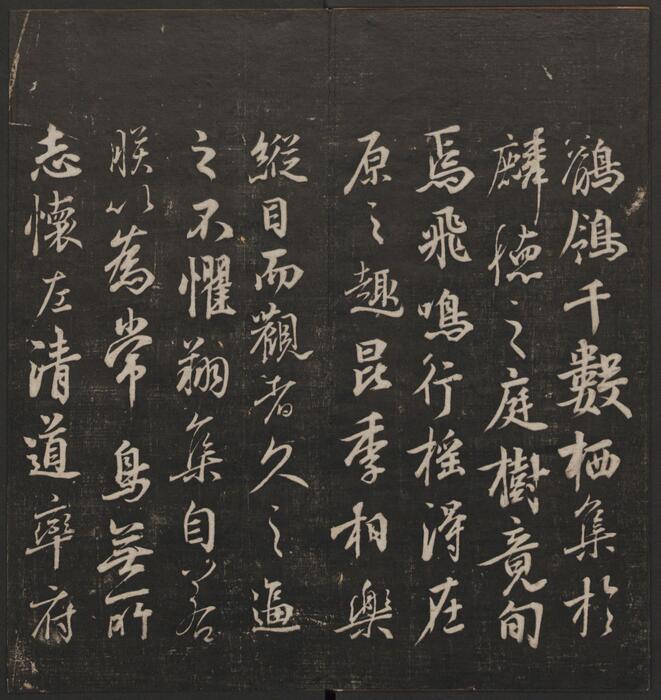 鶺鴒千數栖集於
麟德之庭樹竟旬
焉飛鳴行搖得在
原之趣昆季相樂
縱目而觀者久之逼
之不懼翔集自若
朕以為常鳥無所
志懷左清道率府